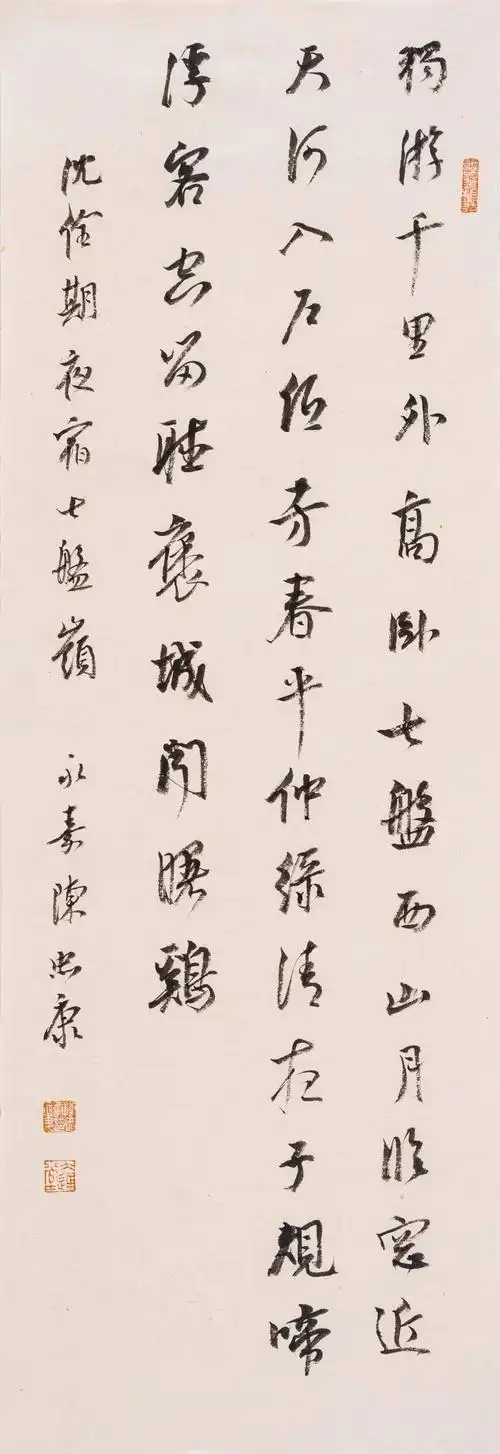 獨游千里外高卧七盤西山月臨窓近
天河入户低芳春平仲緑清夜子規啼
浮客空留聽褒城聞曙鷄
沈佺期夜宿七盤嶺 永嘉陳忠康